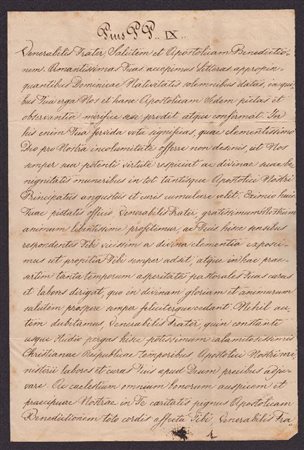 Pius P.P. IX.
Venerabilis Frater, Salutem et Apostolicam Benedictio
nem. Amantissimas Tuas accepimus Litteras appropin
quantibus Dominicae Nativitatis solemnibus datas, in qui
bus Tua erga Nos et hanc Apostolicam Sedem pietas et
observantia mirifice se prodit atque confirmat. In
his enim Tua fervida vota significas, quae clementissimo
Deo pro Nostra incolumitate offerre non desinis, ut Nos
semper sua potenti virtute respiciat ac divinae suae be
nignitatis muneribus in tot tantisque Apostolici Nostri
Principatus angustiis et curis cumulare velit. Eximio huic
Tuae pietatis officio, Venerabilis Frater, gratissimum Nostrum
animum libentissime profitemur, ac Tuis hisce possibus
respondentes Tibi vicissim a divina clementia exposci
mus ut propitia Tibi semper adsit, atque in hac prae
sertim tanta temporum asperitate pastorales Tuas curas
et labores dirigat, quo in divinam gloriam et animarum
salutem prospere semper feliciterque cedant. Nihil au
tem dubitamus Venerabilis Frater, quin constante
usque studio pergas hisce potissimum calamitosissimis
Christianae Reipublicae temporibus Apostolici Nostri mi
nisterii labores et curas Tuis apud Deum precibus adju
vare. Ac caelestium omnium bonorum auspicem et
praecipuae Nostrae in Te caritatis pignus Apostolicam
Benedictionem toto cordis affectu Tibi, Venerabilis Fra